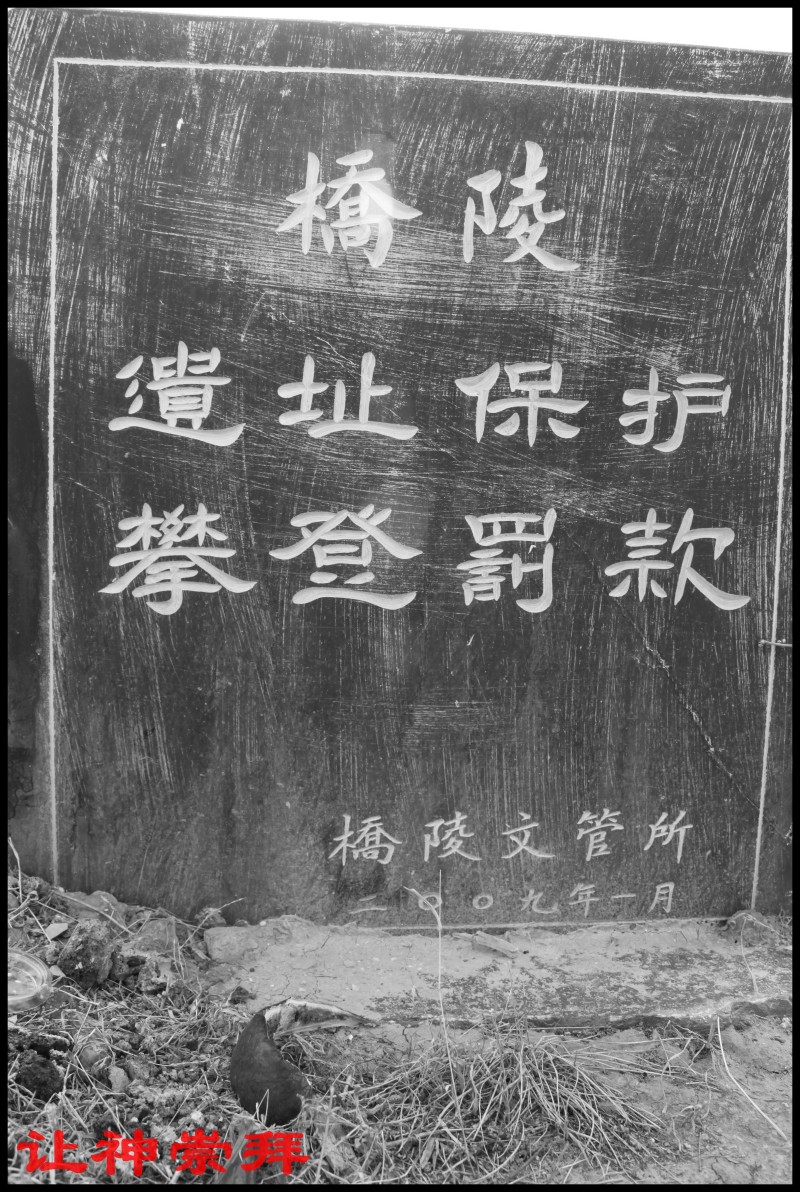 橋陵
遺址保护
攀登罰款
橋陵文管所
二〇〇九年一月
让神崇拜